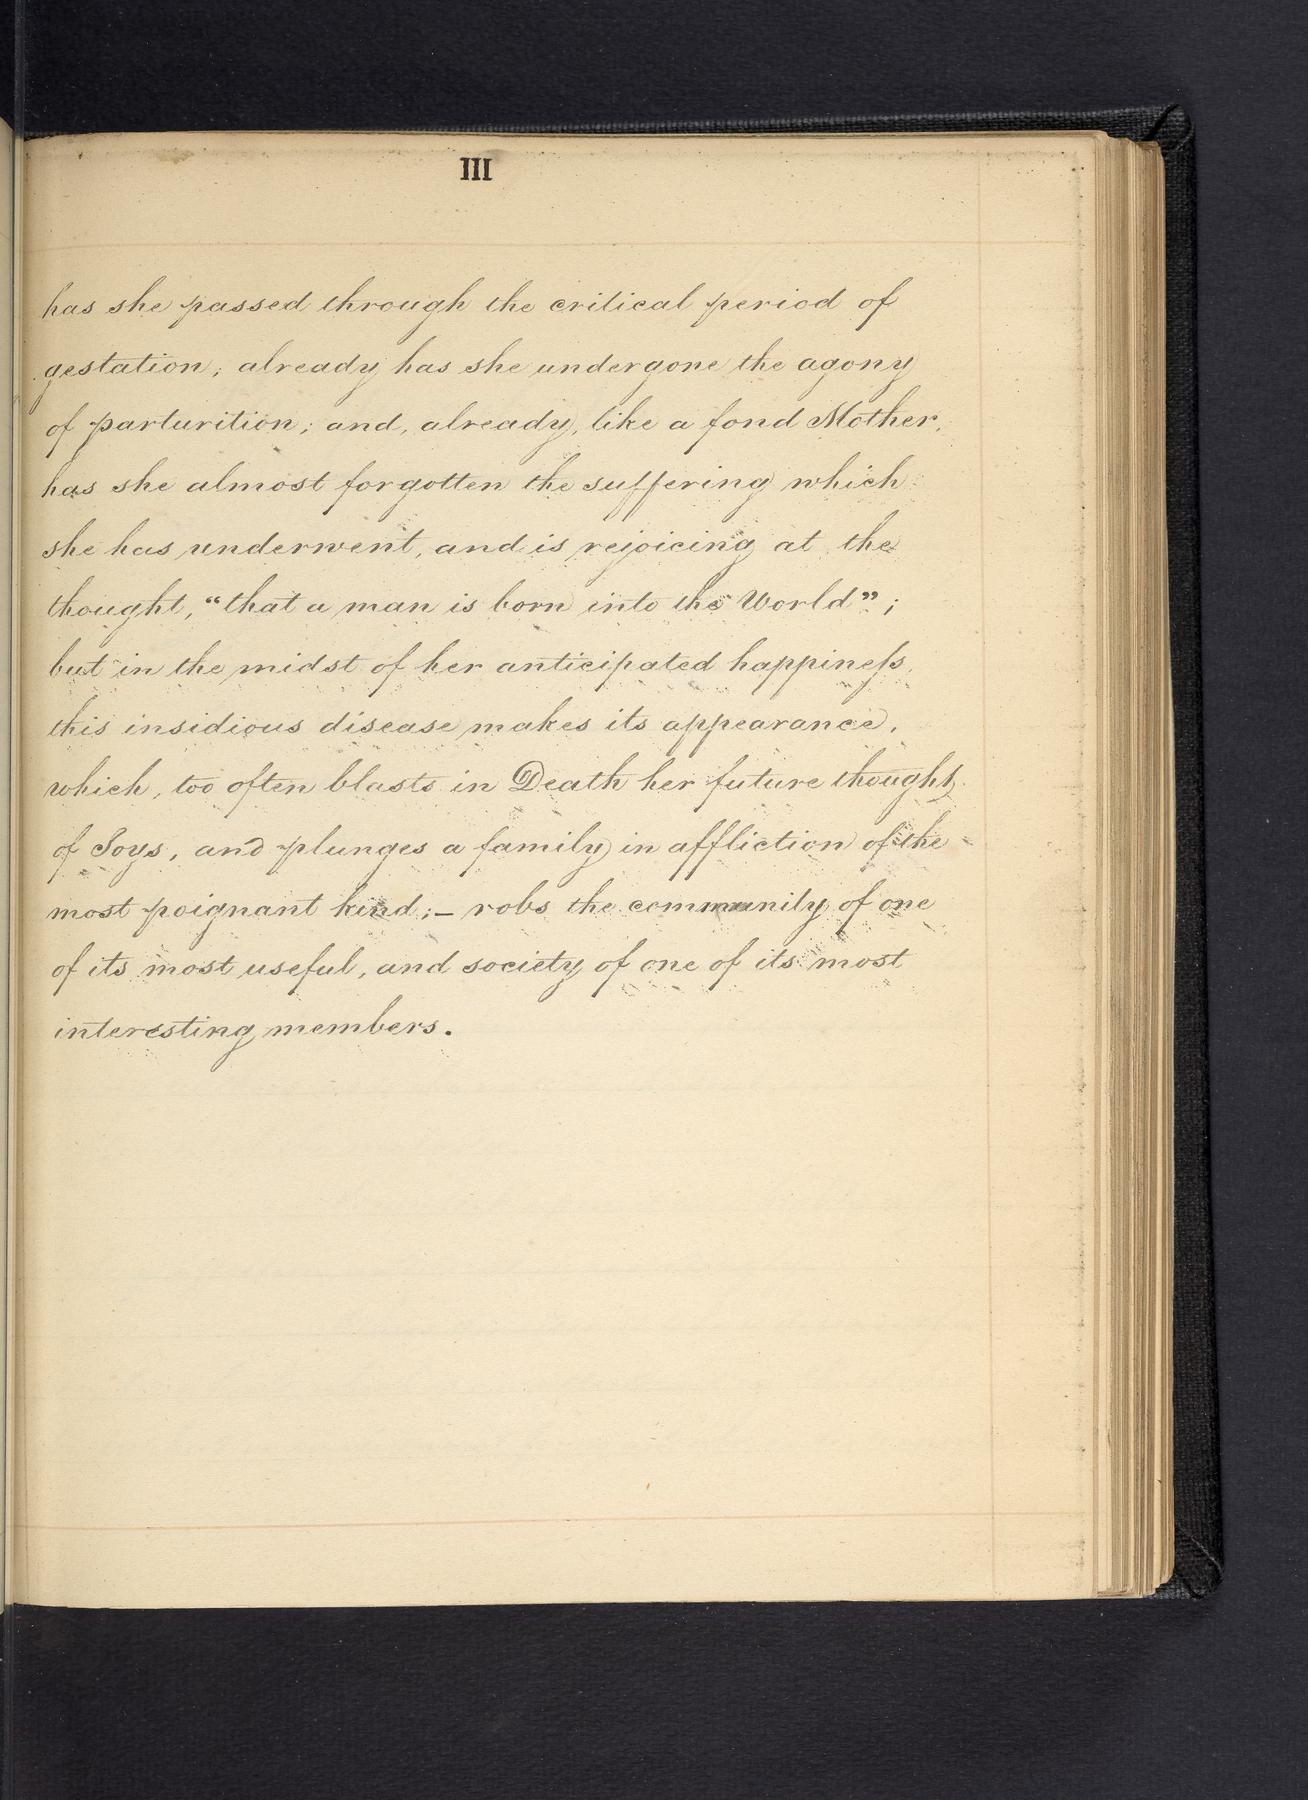 III
has she passed through the critical period of
gestation; already has she undergone the agony
of parturition; and, already, like a fond Mother,
has she almost forgotten the suffering which
she has underwent, and is rejoicing at the
thought, “that a man is born into the World”;
but in the midst of her anticipated happineſs,
this insidious disease makes its appearance,
which, too often blasts in Death her future thought
of Joys, and plunges a family in affliction of the
most poignant kind;— robs the community of one
of its most useful, and society of one of its most
interesting members.